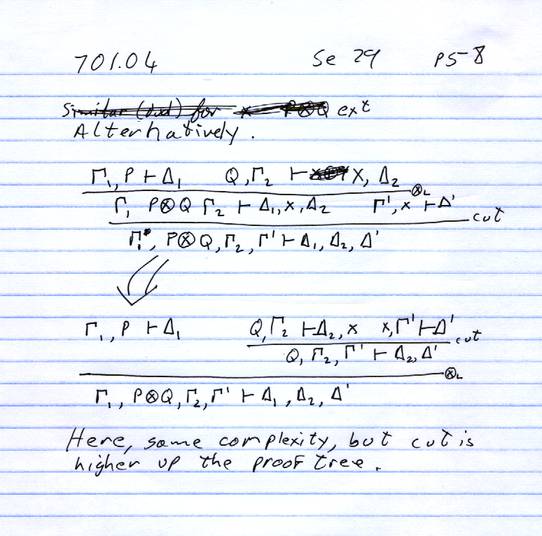 701.04 Se 29 p5-8
Similar (dual) for x P⊗Q ext
Alternatively.
Γ₁, P ⊢ Δ₁ Q, Γ₂ ⊢ x, Δ₂ ⊗L
Γ₁ P⊗Q Γ₂ ⊢ Δ₁, x, Δ₂ Γ', x ⊢ Δ' cut
Γ₁, P⊗Q, Γ₂, Γ' ⊢ Δ₁, Δ₂, Δ'
Γ₁, P ⊢ Δ₁ Q, Γ₂ ⊢ Δ₂, x x, Γ' ⊢ Δ' cut
Q, Γ₂, Γ' ⊢ Δ₂, Δ' ⊗L
Γ₁, P⊗Q, Γ₂, Γ' ⊢ Δ₁, Δ₂, Δ'
Here, same complexity, but cut is
higher up the proof tree.